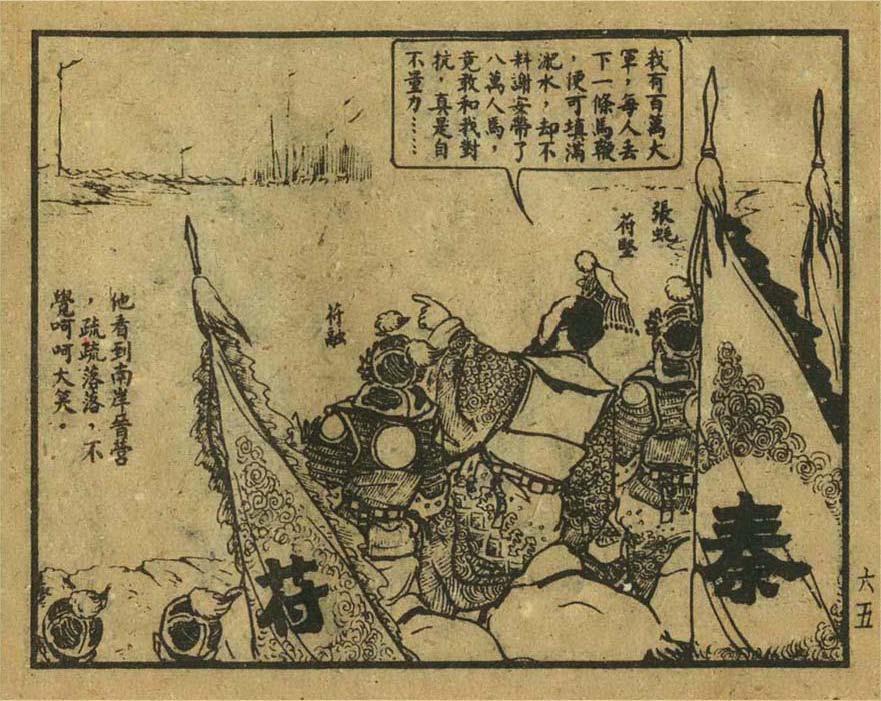 我有百萬大
軍，每人丟
下一條馬鞭
，便可填滿
淝水，却不
料謝安帶了
八萬人馬，
竟敢和我對
抗，真是自
不量力……
張蚝
苻堅
苻融
他看到南岸晉營
，疏疏落落，不
覺呵呵大笑。
秦
苻
六五